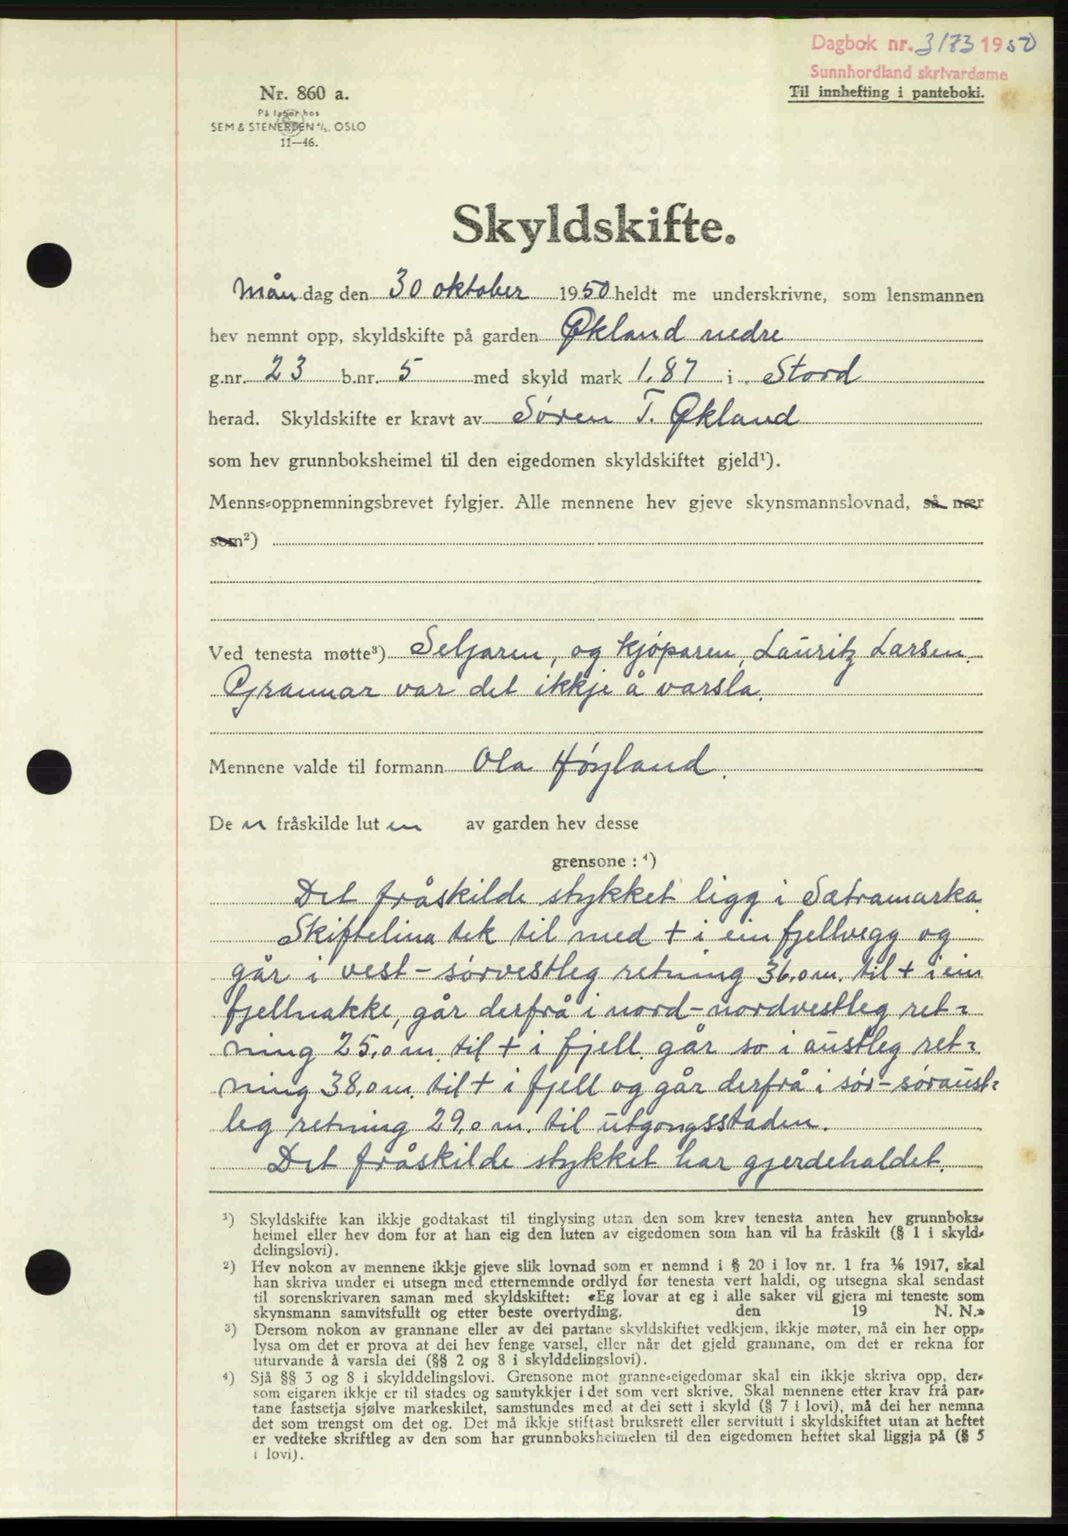 Dagbok nr. 3173 1950
Sunnhordland skrivardøme
Til innhefting i panteboki.
Nr. 860 a.
På lager hos
SEM & STENERSEN A/S. OSLO
11—46.
Skyldskifte.
Mån dag den 30 oktober 1950 heldt me underskrivne, som lensmannen
hev nemnt opp, skyldskifte på garden Økland nedre
g.nr. 23 b.nr. 5 med skyld mark 1.87 i Stord
herad. Skyldskifte er kravt av Søren T. Økland
som hev grunnboksheimel til den eigedomen skyldskiftet gjeld¹).
Menns-oppnemningsbrevet fylgjer. Alle mennene hev gjeve skynsmannslovnad, så nær
som²)
Ved tenesta møtte³) Seljaren, og kjøparen, Lauritz Larsen.
Grannar var det ikkje å varsla.
Mennene valde til formann Ola Høyland.
De n fråskilde lut en av garden hev desse
grensone : ⁴)
Det fråskilde stykket ligg i Sætramarka
Skiftelina tek til med + i ein fjellvegg og
går i vest - sørvestleg retning 36,0 m. til + i ein
fjellnakke, går derfrå i nord - nordvestleg ret-
ning 25,0 m. til + i fjell, går so i austleg ret-
ning 38,0 m. til + i fjell og går derfrå i sør - søraust-
leg retning 29,0 m. til utgongsstaden.
Det fråskilde stykket har gjerdehaldet.
¹) Skyldskifte kan ikkje godtakast til tinglysing utan den som krev tenesta anten hev grunnboks-
heimel eller hev dom for at han eig den luten av eigedomen som han vil ha fråskilt (§ 1 i skyld-
delingslovi).
²) Hev nokon av mennene ikkje gjeve slik lovnad som er nemnd i § 20 i lov nr. 1 fra 1/6 1917, skal
han skriva under ei utsegn med etternemnde ordlyd før tenesta vert haldi, og utsegna skal sendast
til sorenskrivaren saman med skyldskiftet: «Eg lovar at eg i alle saker vil gjera mi teneste som
skynsmann samvitsfullt og etter beste overtyding. den 19 N. N.»
³) Dersom nokon av grannane eller av dei partane skyldskiftet vedkjem, ikkje møter, må ein her opp-
lysa om det er prova at dei hev fenge varsel, eller når det gjeld grannane, om det er rekna for
uturvande å varsla dei (§§ 2 og 8 i skylddelingslovi).
⁴) Sjå §§ 3 og 8 i skylddelingslovi. Grensone mot granne-eigedomar skal ein ikkje skriva opp, der-
som eigaren ikkje er til stades og samtykkjer i det som vert skrive. Skal mennene etter krav frå par-
tane fastsetja sjølve markeskilet, samstundes med at dei sett i skyld (§ 7 i lovi), må dei her nemna
det som trengst om det og. Det må ikkje stiftast bruksrett eller servitutt i skyldskiftet utan at heftet
er vedteke skriftleg av den som har grunnboksheimelen til den eigedomen heftet skal liggja på (§ 5
i lovi).